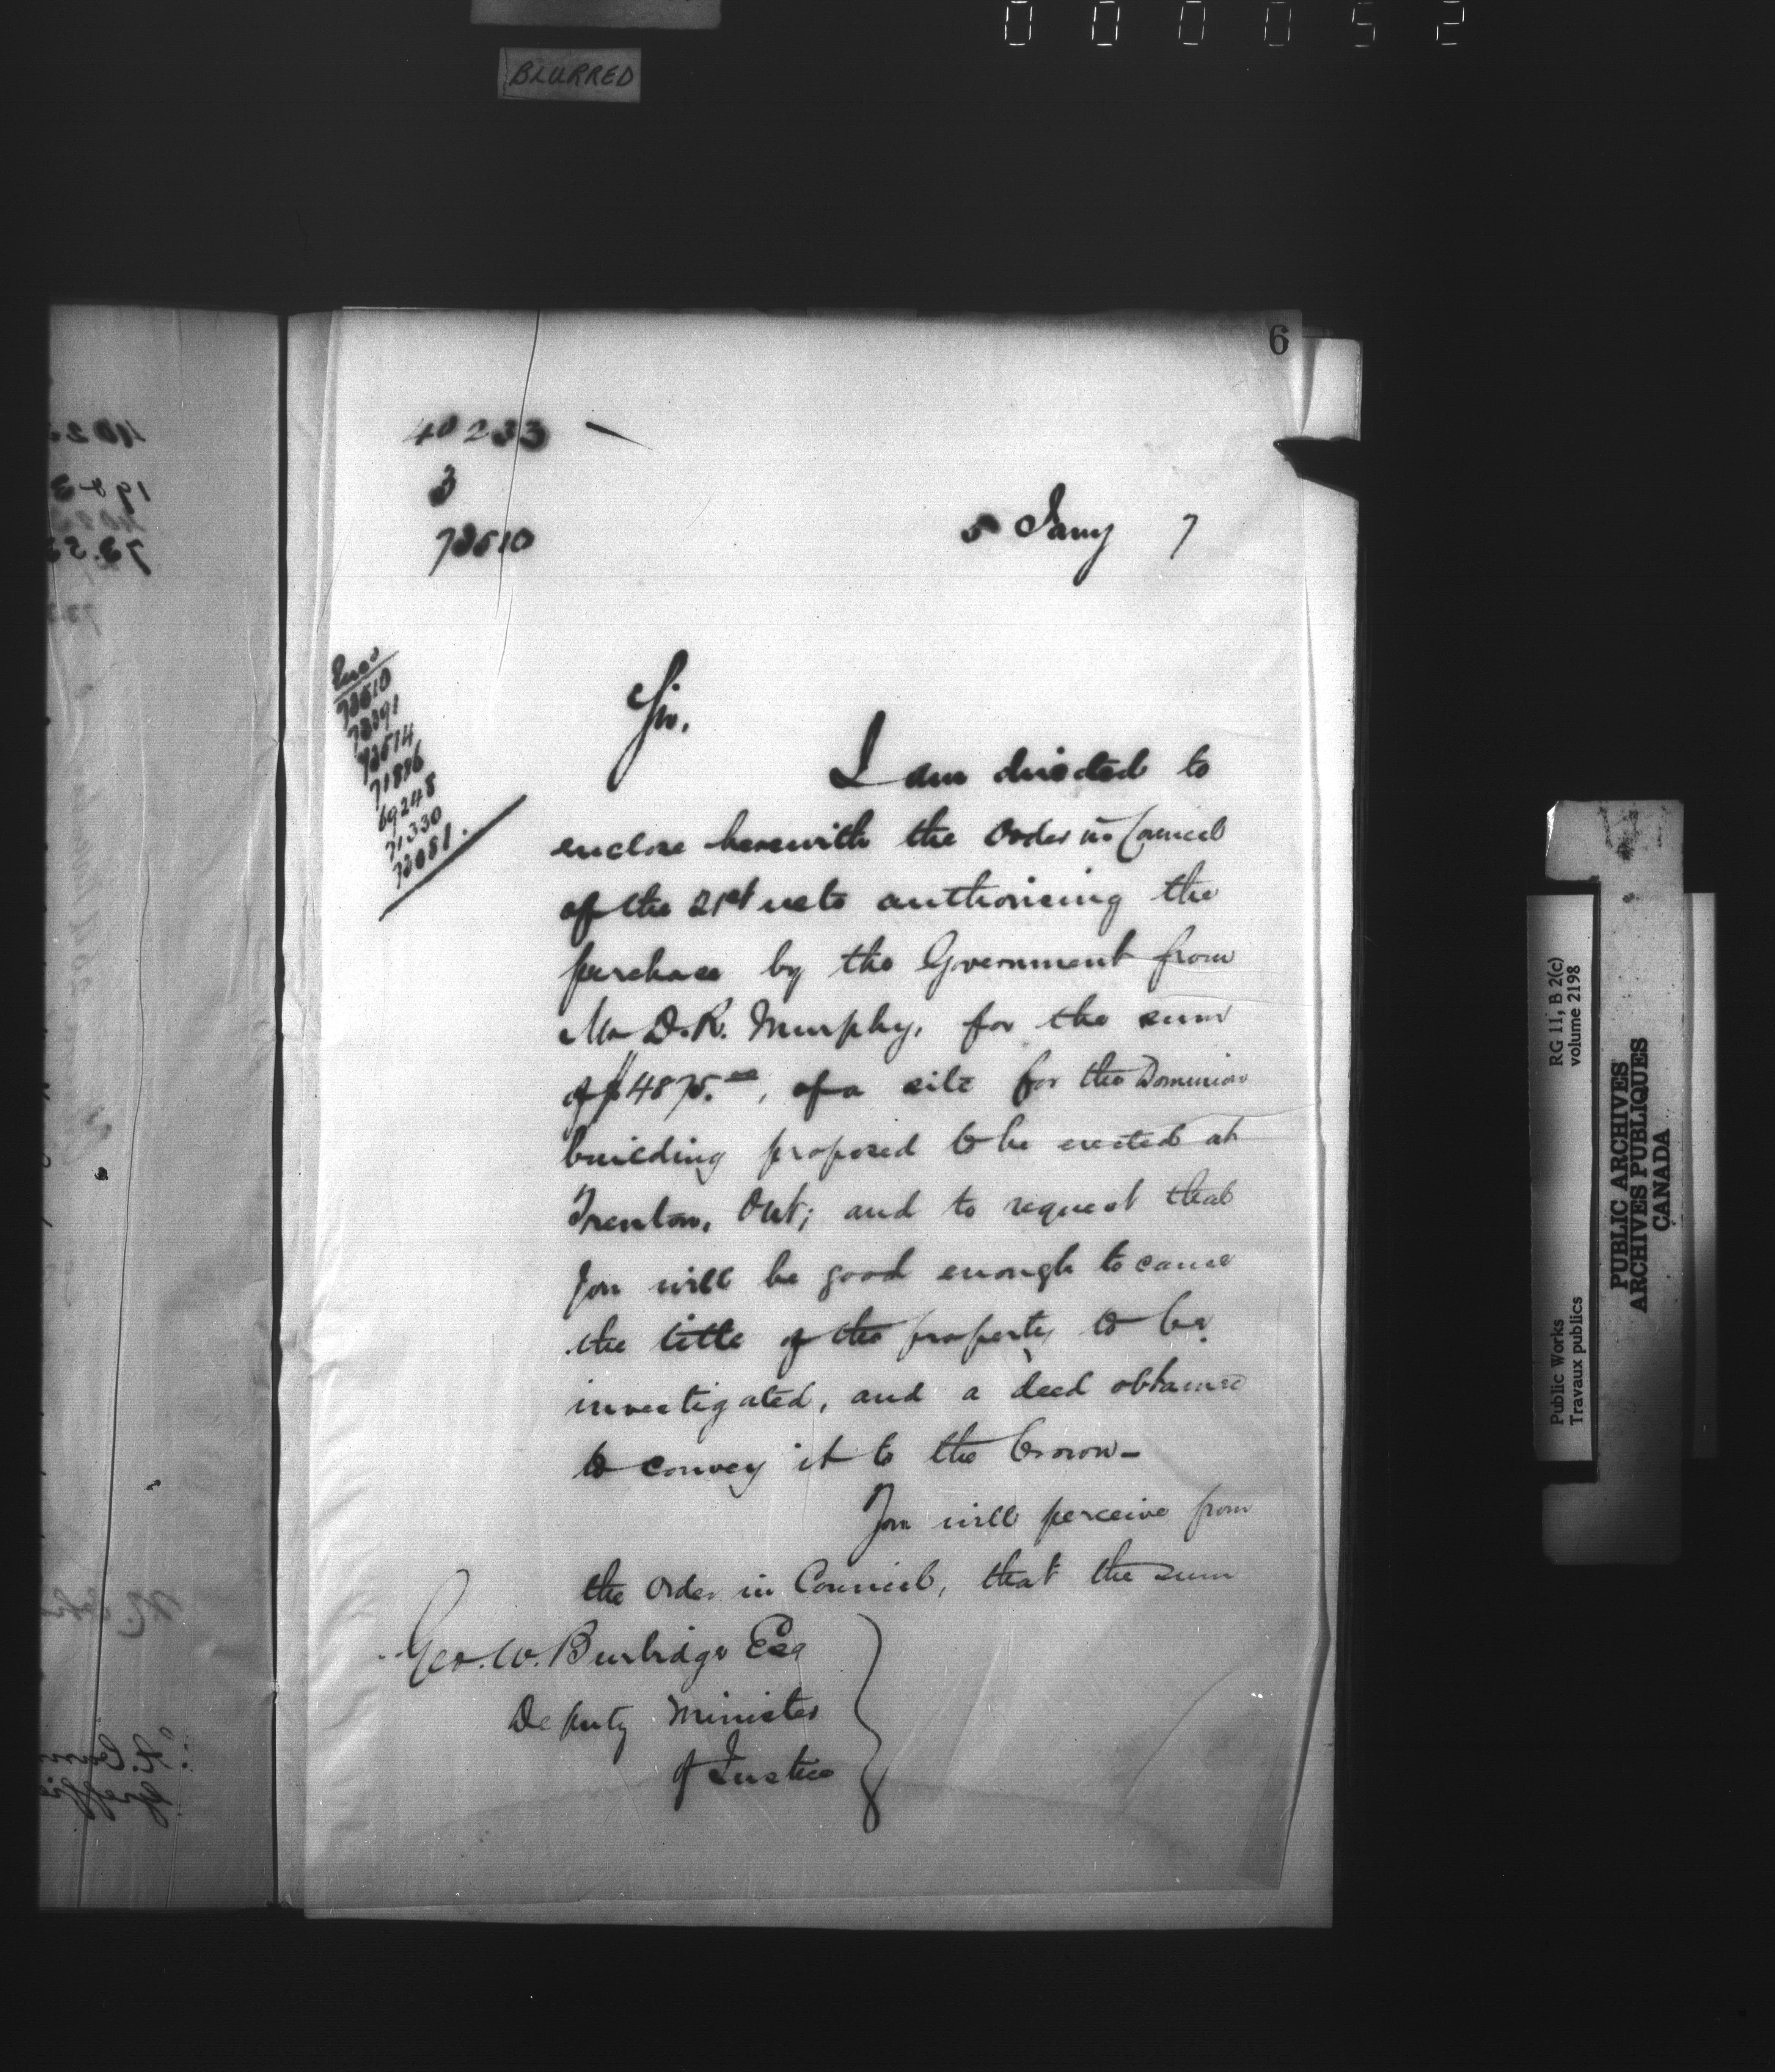 000052
BLURRED
6
40233
3
73510
5 Jany 7
Encs
73510
73391
73514
71896
69248
71330
73051.
Sir,
I am directed to
enclose herewith the Order in Council
of the 21st ulto authorising the
purchase by the Government from
Mr D.R. Murphy, for the sum
of $4875.00, of a site for the Dominion
building proposed to be erected at
Trenton, Ont; and to request that
you will be good enough to cause
the title of the property to be
investigated, and a deed obtained
to convey it to the Crown-
You will perceive from
the Order in Council, that the sum
Geo. W. Burbidge Esq
Deputy Minister
of Justice
RG 11, B 2(c)
volume 2198
Public Works
Travaux publics
PUBLIC ARCHIVES
ARCHIVES PUBLIQUES
CANADA